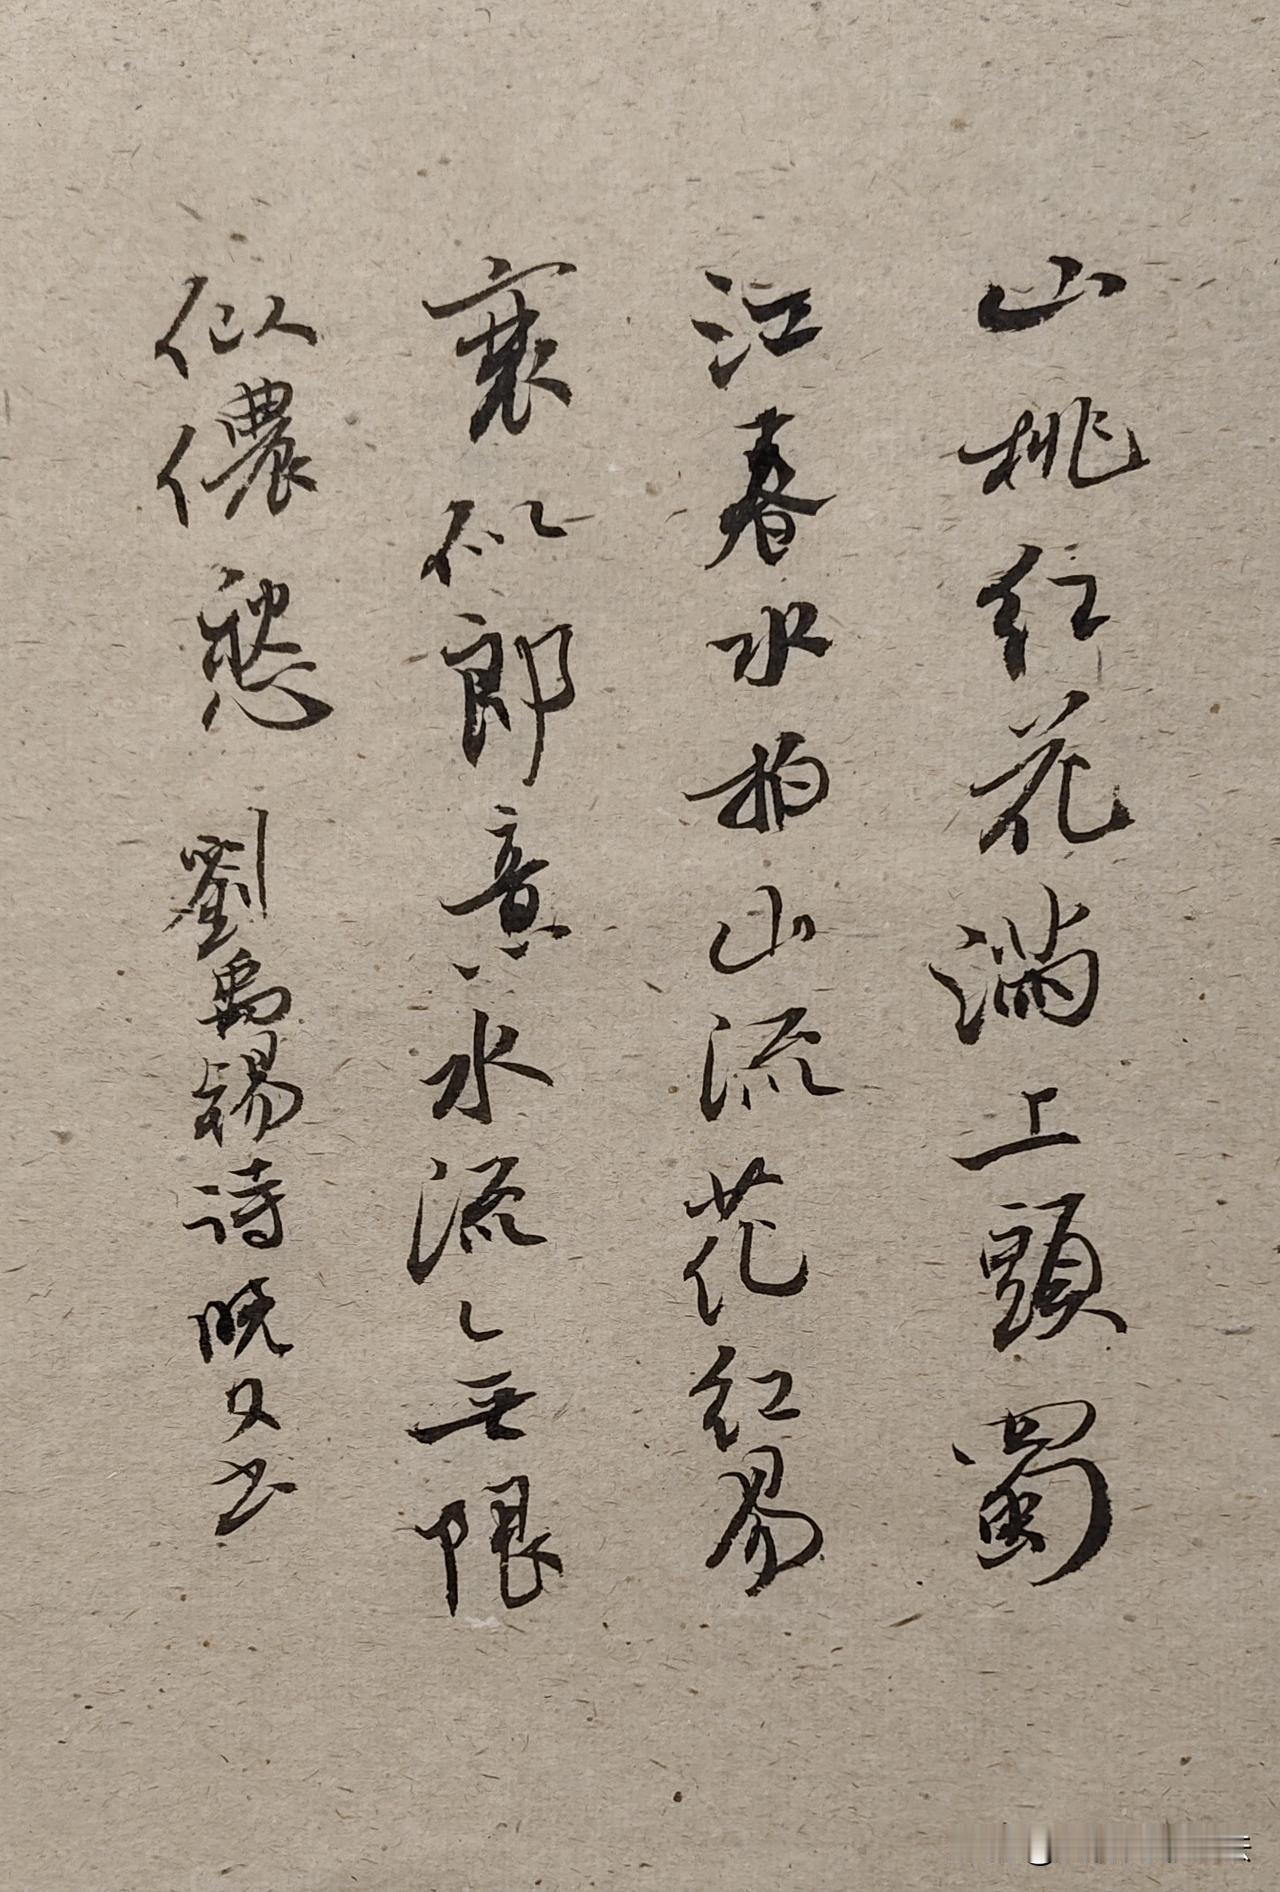 山桃红花满上頭蜀
江春水拍山流花红易
衰似郎意水流無限
似儂愁 劉禹锡诗 书